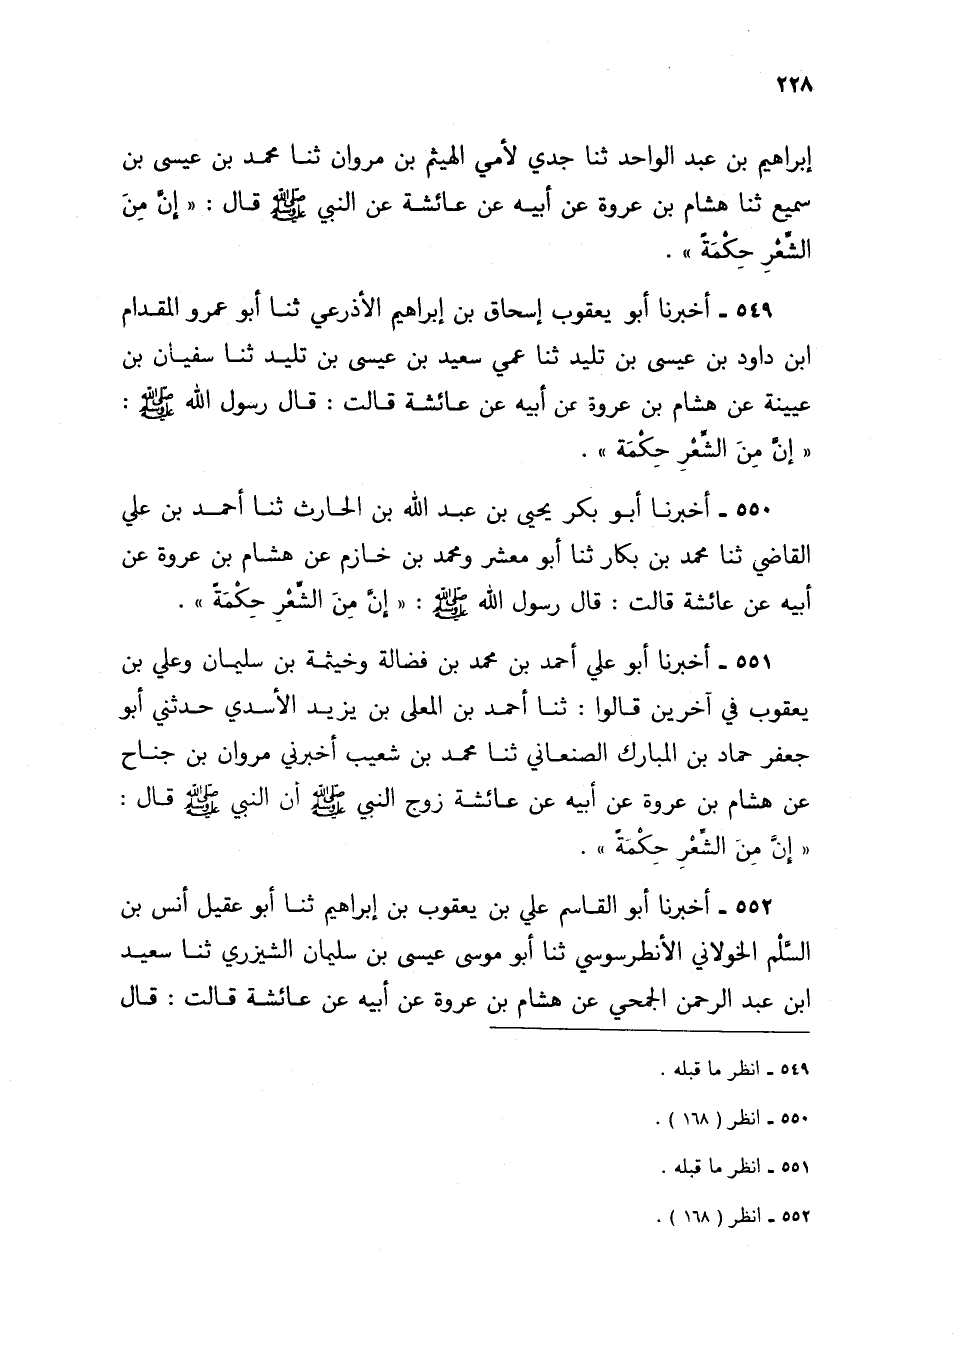 ٢٢٨
إبراهيم بن عبد الواحد ثنا جدي لأمي الهيثم بن مروان ثنا محمد بن عيسى بن
سميع ثنا هشام بن عروة عن أبيه عن عائشة عن النبي ﷺ قال : « إنَّ مِنَ
الشِّعْرِ حِكْمَةً » .
٥٤٩ ـ أخبرنا أبو يعقوب إسحاق بن إبراهيم الأذرعي ثنا أبو عمرو المقدام
ابن داود بن عيسى بن تليد ثنا عمي سعيد بن عيسى بن تليد ثنا سفيان بن
عيينة عن هشام بن عروة عن أبيه عن عائشة قالت : قال رسول الله ﷺ :
« إنَّ مِنَ الشِّعْرِ حِكْمَة » .
٥٥٠ ـ أخبرنا أبو بكر يحيى بن عبد الله بن الحارث ثنا أحمد بن علي
القاضي ثنا محمد بن بكار ثنا أبو معشر ومحمد بن خازم عن هشام بن عروة عن
أبيه عن عائشة قالت : قال رسول الله ﷺ : « إنَّ مِنَ الشِّعْرِ حِكْمَةً » .
٥٥١ ـ أخبرنا أبو علي أحمد بن محمد بن فضالة وخيثمة بن سليمان وعلي بن
يعقوب في آخرين قالوا : ثنا أحمد بن المعلى بن يزيد الأسدي حدثني أبو
جعفر حماد بن المبارك الصنعاني ثنا محمد بن شعيب أخبرني مروان بن جناح
عن هشام بن عروة عن أبيه عن عائشة زوج النبي ﷺ أن النبي ﷺ قال :
« إنَّ مِنَ الشِّعْرِ حِكْمَةً » .
٥٥٢ ـ أخبرنا أبو القاسم علي بن يعقوب بن إبراهيم ثنا أبو عقيل أنس بن
السَّلْم الخولاني الأنطرسوسي ثنا أبو موسى عيسى بن سليمان الشيزري ثنا سعيد
ابن عبد الرحمن الجمحي عن هشام بن عروة عن أبيه عن عائشة قالت : قال
٥٤٩ ـ انظر ما قبله .
٥٥٠ ـ انظر ( ١٦٨ ) .
٥٥١ ـ انظر ما قبله .
٥٥٢ ـ انظر ( ١٦٨ ) .